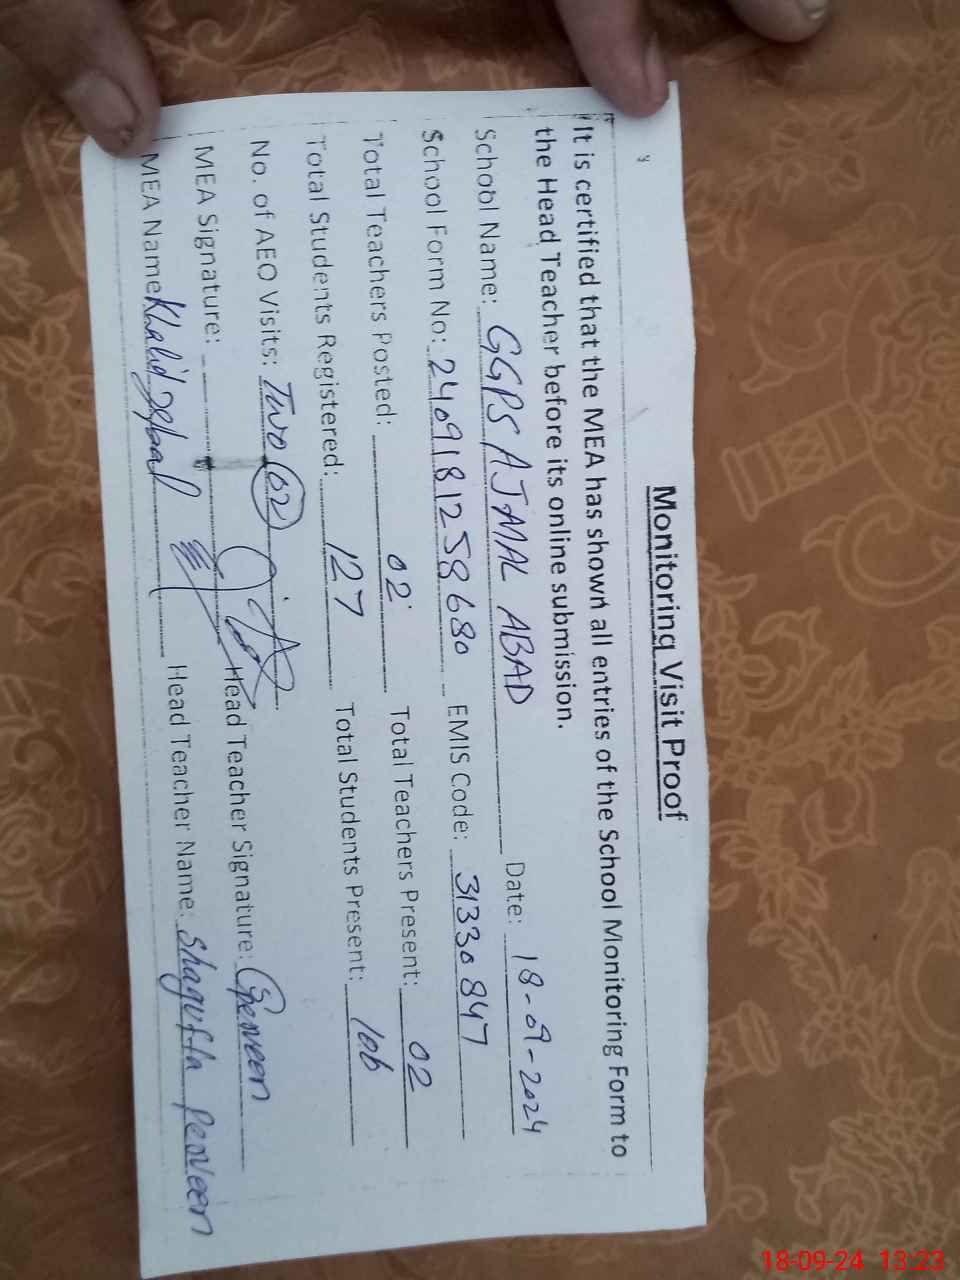 Monitoring Visit Proof
It is certified that the MEA has shown all entries of the School Monitoring Form to
the Head Teacher before its online submission.
School Name: GGPS AJMAL ABAD Date: 18-09-2024
School Form No: 2409181258680 EMIS Code: 31330847
Total Teachers Posted: 02 Total Teachers Present: 02
Total Students Registered: 127 Total Students Present: 106
No. of AEO Visits: Two 02
MEA Signature: Head Teacher Signature: Perveen
MEA Name: Khalid Iqbal Head Teacher Name: Shagufta Perveen
18-09-24 13:23